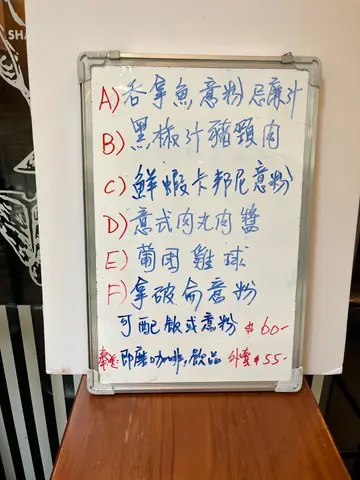 SHA
A) 吞拿魚意粉忌廉汁
B) 黑椒汁豬頸肉
C) 鮮蝦卡邦尼意粉
D) 意式肉丸肉醬
E) 葡国雞球
F) 拿破侖意粉
可配飯或意粉 $60-
即磨咖啡,飲品 外賣$55-